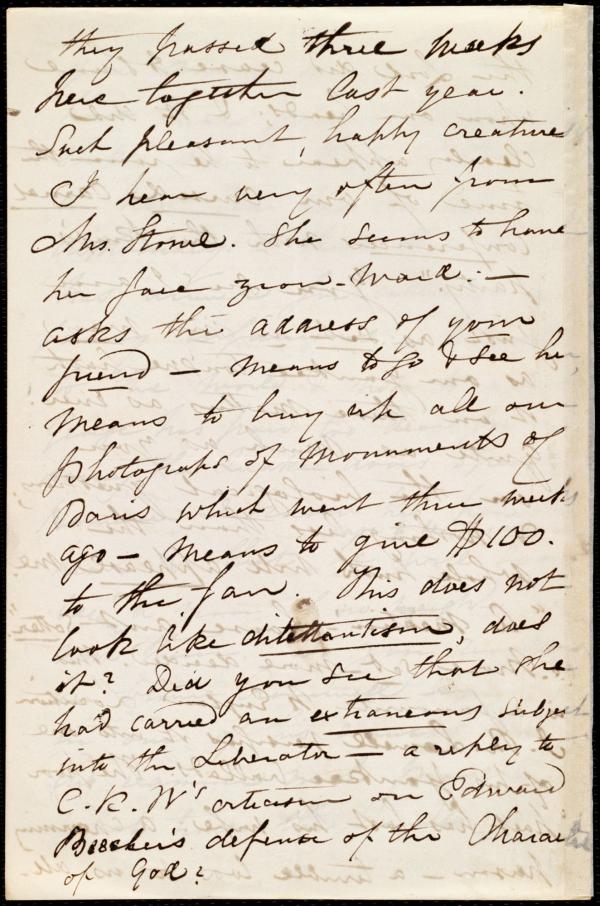 they passed three weeks
here together last year.
Such pleasant, happy creature
I hear very often from
Mrs. Stowe. She seems to have
her face zion-ward: —
asks the address of your
friend — means to go & see he
means to buy up all our
photographs of monuments of
Paris which went three weeks
ago — means to give $100.
to the fair. This does not
look like dilettantism, does
it? Did you see that she
had carried an extraneous subject
into the Liberator — a reply to
C. K. W's criticism on Edward
Beecher's defense of the Charac
of God?